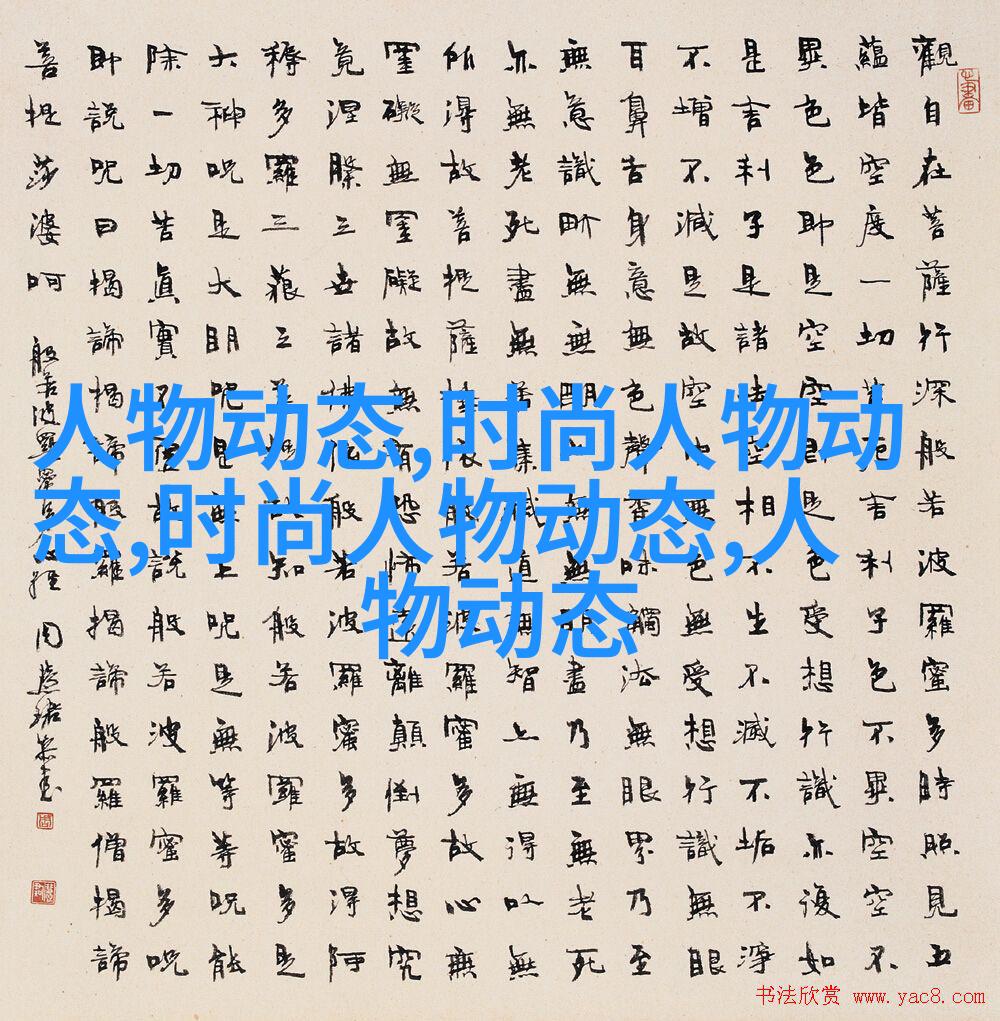 觀自在菩薩行深般若波羅蜜多時照見五
蘊皆空度一切苦厄舍利子色不異空空不
異色色即是空空即是色受想行識亦復如
是舍利子是諸法空相不生不滅不垢不淨
不增不減是故空中無色無受想行識無眼
耳鼻舌身意無色聲香味觸法無眼界乃至
無意識界無無明亦無無明盡乃至無老死
亦無老死盡無苦集滅道無智亦無得以無
所得故菩提薩埵依般若波羅蜜多故心無
罣礙無罣礙故無有恐怖遠離顛倒夢想究
竟涅槃三世諸佛依般若波羅蜜多故得阿
耨多羅三藐三菩提故知般若波羅蜜多是
大神咒是大明咒是無上咒是無等等咒能
除一切苦真實不虛故說般若波羅蜜多咒
即說咒曰揭諦揭諦般羅揭諦般羅僧揭諦
菩提莎婆呵 般若波羅蜜多心經 周慧珺恭書
人物动态,时尚人物动
态,时尚人物动态,人
物动态
书法欣赏 www.yac8.com